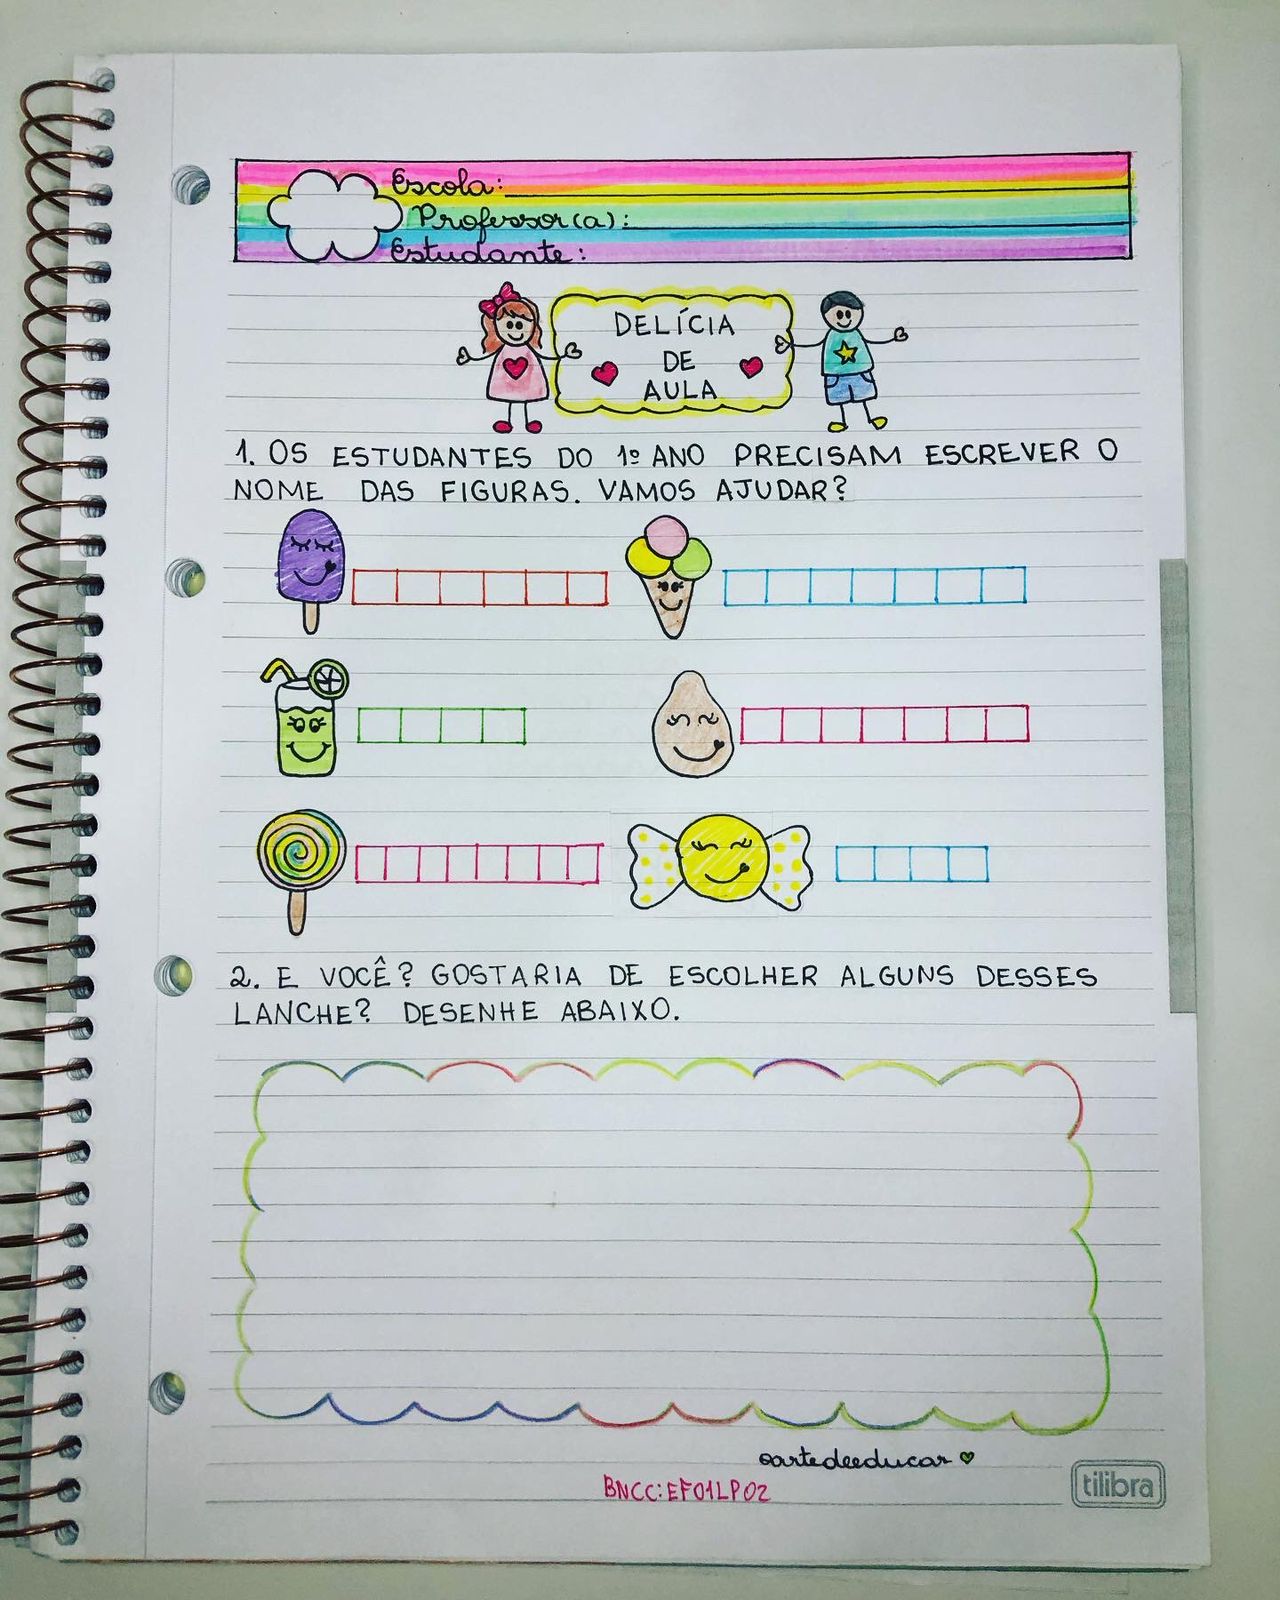 Escola:
Professor(a):
Estudante:
DELÍCIA
DE
AULA
1. OS ESTUDANTES DO 1º ANO PRECISAM ESCREVER O
NOME DAS FIGURAS. VAMOS AJUDAR?
2. E VOCÊ? GOSTARIA DE ESCOLHER ALGUNS DESSES
LANCHE? DESENHE ABAIXO.
@artedeeducar
BNCC: EF01LP02
tilibra